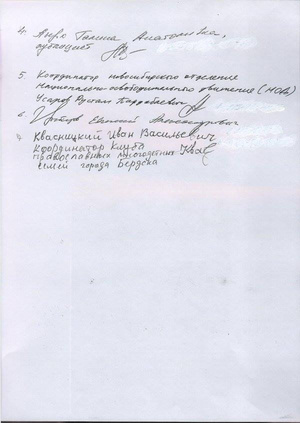 4. Галина Анатольевна,
публицист
5. Координатор новосибирского отделения
Национально-освободительного движения (НОД)
Рустам
6. Евгений Александрович
7 Квасницкий Иван Васильевич
координатор Клуба
православных многодетных
семей города Бердска